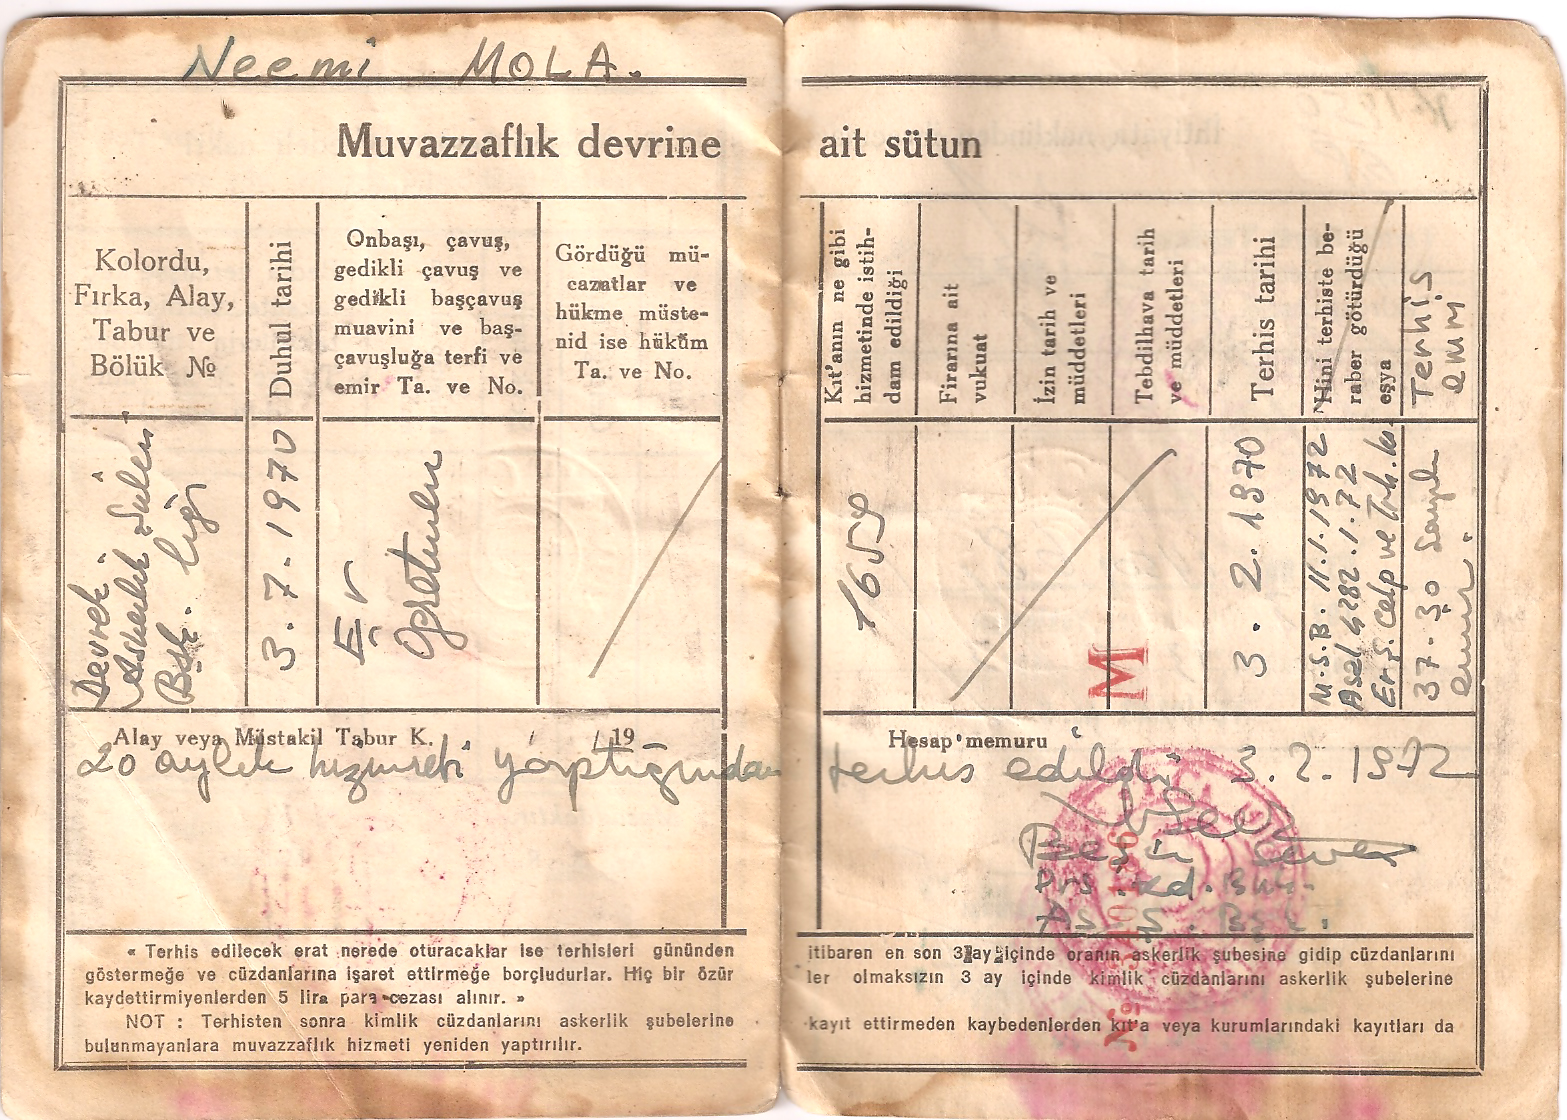 Neemi MOLA.
Muvazzaflık devrine ait sütun
Kolordu,
Fırka, Alay,
Tabur ve
Bölük №
Duhul tarihi
Onbaşı, çavuş,
gedikli çavuş ve
gedikli başçavuş
muavini ve baş-
çavuşluğa terfi ve
emir Ta. ve No.
Gördüğü mü-
cazatlar ve
hükme müste-
nid ise hüküm
Ta. ve No.
Kıt'anın ne gibi
hizmetinde istih-
dam edildiği
Firarına ait
vukuat
İzin tarih ve
müddetleri
Tebdilhava tarih
ve müddetleri
Terhis tarihi
Hini terhiste be-
raber götürdüğü
eşya
Terhiş
emri
Devrek
Askerlik
Bşk. lığı
3.7.1970
Er
1654
M
3.2.1970
M.S.B. 11.1.1972
Asal 4282.1.72
Er.Ş. celp ve Trh. ks.
37-30 Sayılı
emir.
Alay veya Müstakil Tabur K. / / 19
Hesap memuru
20 aylık hizmeti yaptığından terhis edildi 3.2.1972
As. Ş. Bşk.
« Terhis edilecek erat nerede oturacaklar ise terhisleri gününden itibaren en son 3 ay içinde oranın askerlik şubesine gidip cüzdanlarını
göstermeğe ve cüzdanlarına işaret ettirmeğe borçludurlar. Hiç bir özür ler olmaksızın 3 ay içinde kimlik cüzdanlarını askerlik şubelerine
kaydettirmiyenlerden 5 lira para cezası alınır. »
NOT : Terhisten sonra kimlik cüzdanlarını askerlik şubelerine kayıt ettirmeden kaybedenlerden kıt'a veya kurumlarındaki kayıtları da
bulunmayanlara muvazzaflık hizmeti yeniden yaptırılır.